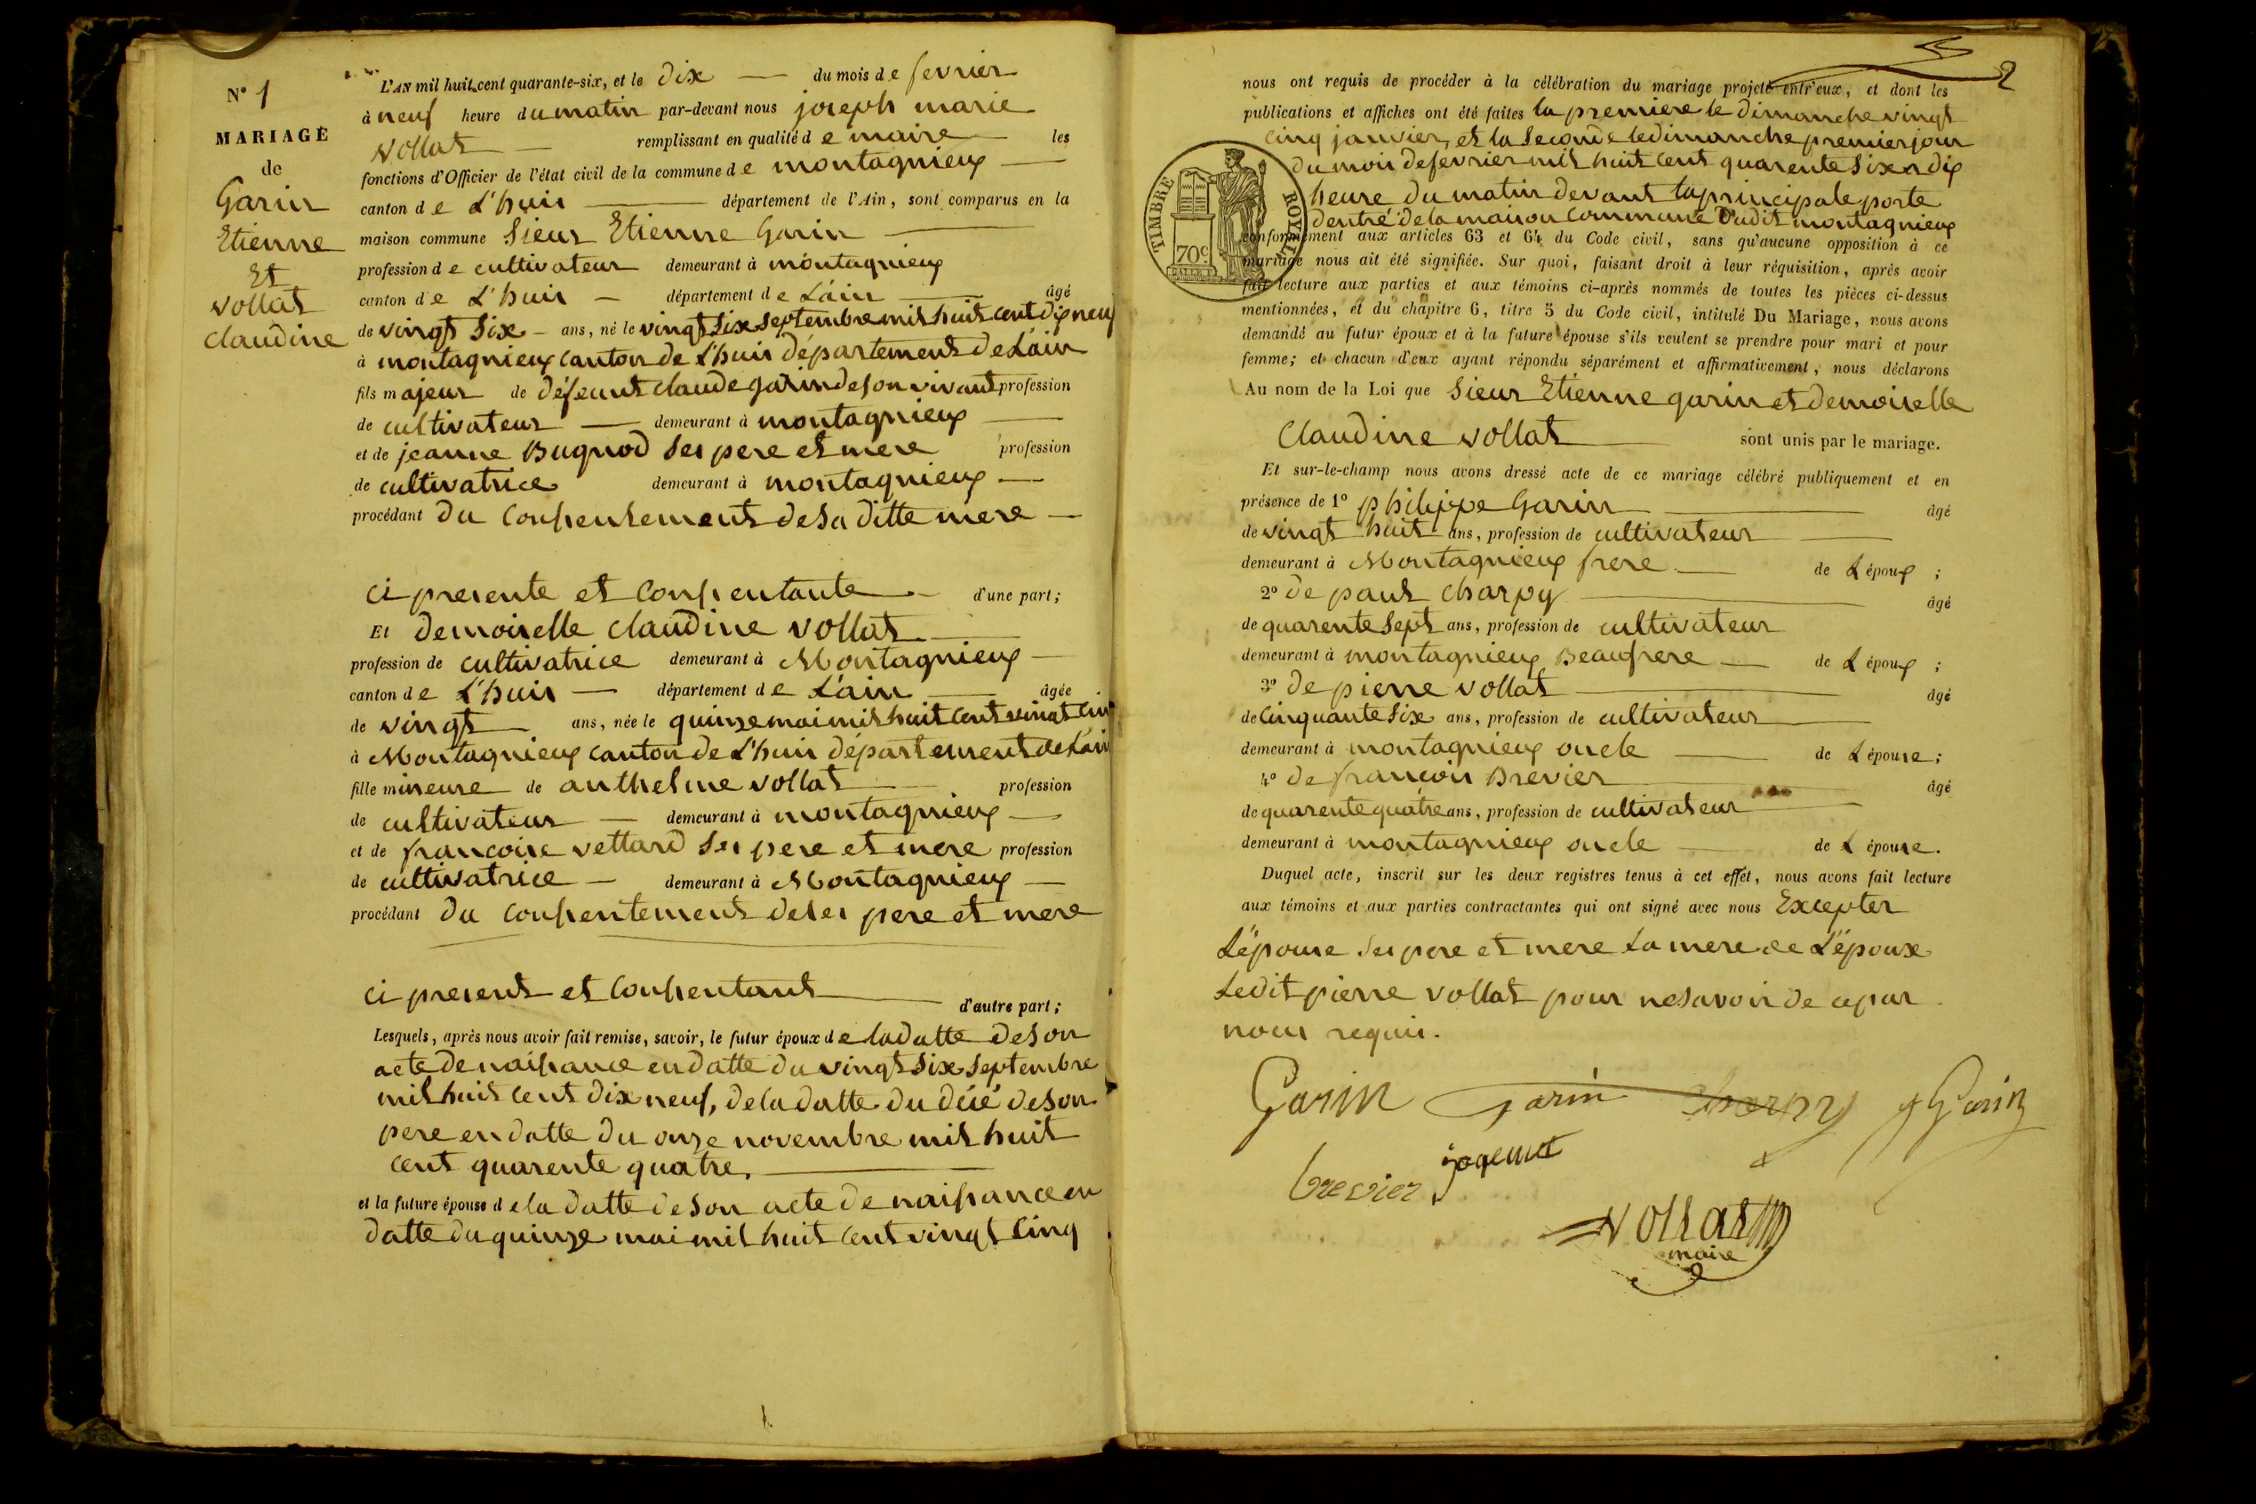 N° 1
MARIAGE
de
Garin
Etienne
Et
vollat
claudine
L'AN mil huit cent quarante-six, et le dix du mois de fevrier
à neuf heure du matin par-devant nous joseph marie
vollat remplissant en qualité de maire les
fonctions d'Officier de l'état civil de la commune de montagnieux
canton de L'huis département de l'Ain, sont comparus en la
maison commune Sieur Etienne Garin
profession de cultivateur demeurant à montagnieux
canton de L'huis département de L'ain âgé
de vingt Six ans, né le vingt Six Septembre mil huit cent dix neuf
à montagnieux canton de L'huis département de L'ain
fils majeur de défeunt claude garin de son vivant profession
de cultivateur demeurant à montagnieux
et de jeanne Bugnod Ses pere et mere profession
de cultivatrice demeurant à montagnieux
procédant du Consentement de sa ditte mere
ci presente et Consentante d'une part;
Et demoiselle claudine vollat
profession de cultivatrice demeurant à Montagnieux
canton de L'huis département de L'ain âgée
de vingt ans, née le quinze mai mil huit cent vingt cin
à Montagnieux canton de L'huis département de L'ain
fille mineure de anthelme vollat profession
de cultivateur demeurant à montagnieux
et de francoise vettard Ses pere et mere profession
de cultivatrice demeurant à Montagnieux
procédant du consentement de ses pere et mere
ci presents et Consentants d'autre part;
Lesquels, après nous avoir fait remise, savoir, le futur époux de la datte de son
acte de naissance en datte du vingt Six Septembre
mil huit cent dix neuf, de la datte du décé de son
pere en datte du onze novembre mil huit
cent quarente quatre.
et la future épouse de la datte de son acte de naissance en
datte du quinze mai mil huit cent vingt Cinq
2
nous ont requis de procéder à la célébration du mariage projeté entr'eux, et dont les
publications et affiches ont été faites la premiere le dimanche vingt
cinq janvier, et la Seconde le dimanche premier jour
du mois de fevrier mil huit cent quarente Six a dix
heure du matin devant la principale porte
dentré de la maison commune dudit montagnieux
conformément aux articles 63 et 64 du Code civil, sans qu'aucune opposition à ce
mariage nous ait été signifiée. Sur quoi, faisant droit à leur réquisition, après avoir
fait lecture aux parties et aux témoins ci-après nommés de toutes les pièces ci-dessus
mentionnées, et du chapitre 6, titre 5 du Code civil, intitulé Du Mariage, nous avons
demandé au futur époux et à la future épouse s'ils veulent se prendre pour mari et pour
femme; et chacun d'eux ayant répondu séparément et affirmativement, nous déclarons
Au nom de la Loi que Sieur Etienne garin et demoiselle
Claudine vollat sont unis par le mariage.
Et sur-le-champ nous avons dressé acte de ce mariage célébré publiquement et en
présence de 1° philippe Garin âgé
de vingt huit ans, profession de cultivateur
demeurant à Montagnieux frere de L époux ;
2° de paul charpy âgé
de quarente Sept ans, profession de cultivateur
demeurant à montagnieux Beaufrere de L époux ;
3° de pierre vollat âgé
de Cinquante Six ans, profession de cultivateur
demeurant à montagnieux oncle de L épouse;
4° de francois Brevier âgé
de quarente quatre ans, profession de cultivateur
demeurant à montagnieux oncle de L épouse.
Duquel acte, inscrit sur les deux registres tenus à cet effet, nous avons fait lecture
aux témoins et aux parties contractantes qui ont signé avec nous Excepter
L'épouse Ses pere et mere La mere de L'époux
Ledit pierre vollat pour ne savoir de ce par
nous requis.
TIMBRE ROYAL
70c
Garin Garin Charpy f Garin
brevier
vollat
maire